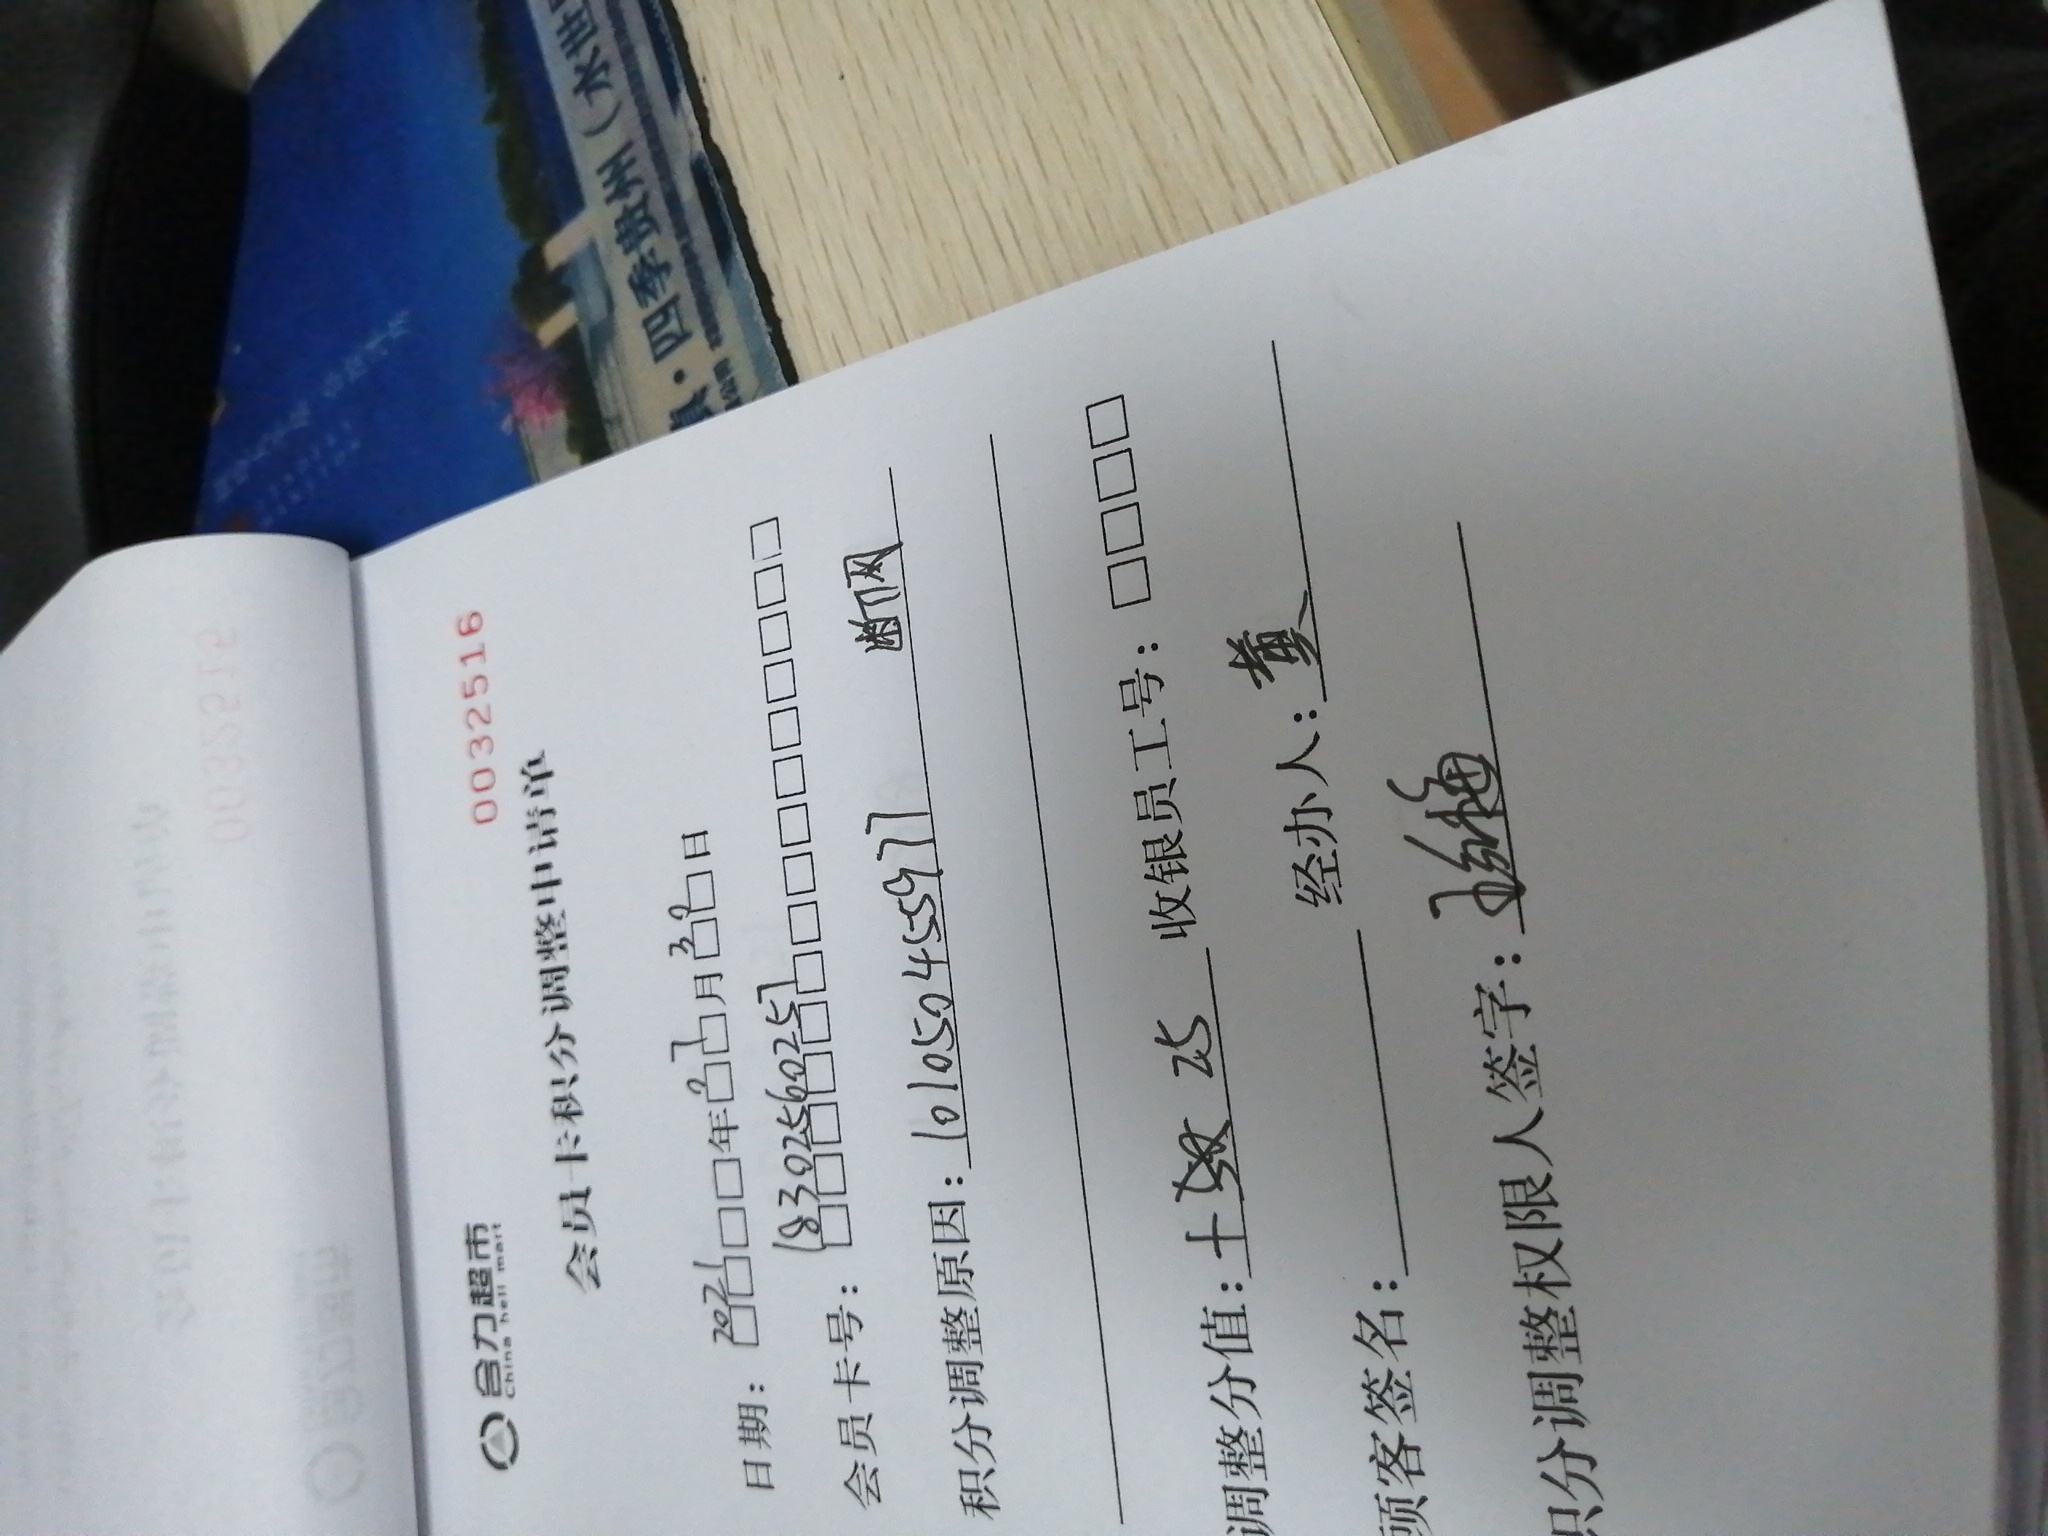 合力超市
China heli mart
0032516
会员卡积分调整申请单
日期：2021年07月30日
会员卡号：18302560257
积分调整原因：10105045597 断网
调整分值：+ 25 收银员工号：
顾客签名： 经办人：黄
积分调整权限人签字：
四季贵州（水世